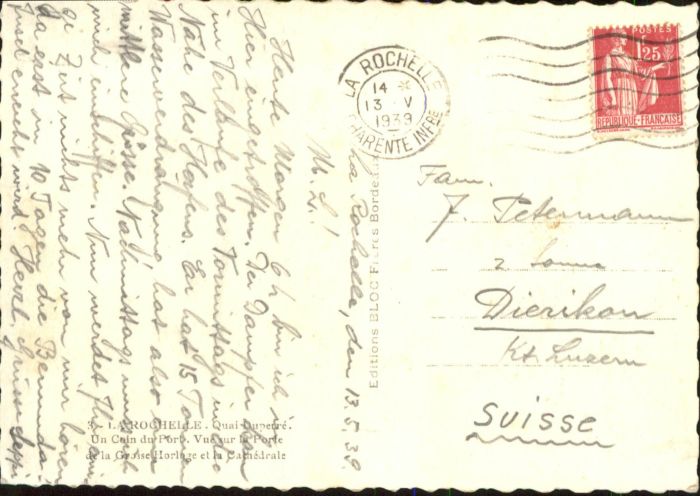 La Rochelle, den 13.5.39.
M. L.!
Heute Morgen 6 h bin ich
hier eingetroffen. Der Dampfer kam
im Verlaufe des Vormittags in die
Nähe des Hafens. Er hat 15 Tonnen
Wasserverdrängung hat also eine
mittlere Grösse. Nachmittags werde ich
mich einschiffen. Nun werdet Ihr eini-
ge Zeit nichts mehr von mir hören,
da erst in 10 Tagen die Bermuda-
Insel erreicht wird. Herzl. Grüsse
3. - LA ROCHELLE. - Quai Duperré.
Un Coin du Port. Vue sur la Porte
de la Grosse Horloge et la Cathédrale
Editions BLOC Frères Bordeaux
LA ROCHELLE
14
13 V
1939
CHARENTE INFRE
POSTES
1F25
REPUBLIQUE-FRANÇAISE
Fam.
J. Petermann
z. Sonne
Dierikon
Kt. Luzern
SUISSE